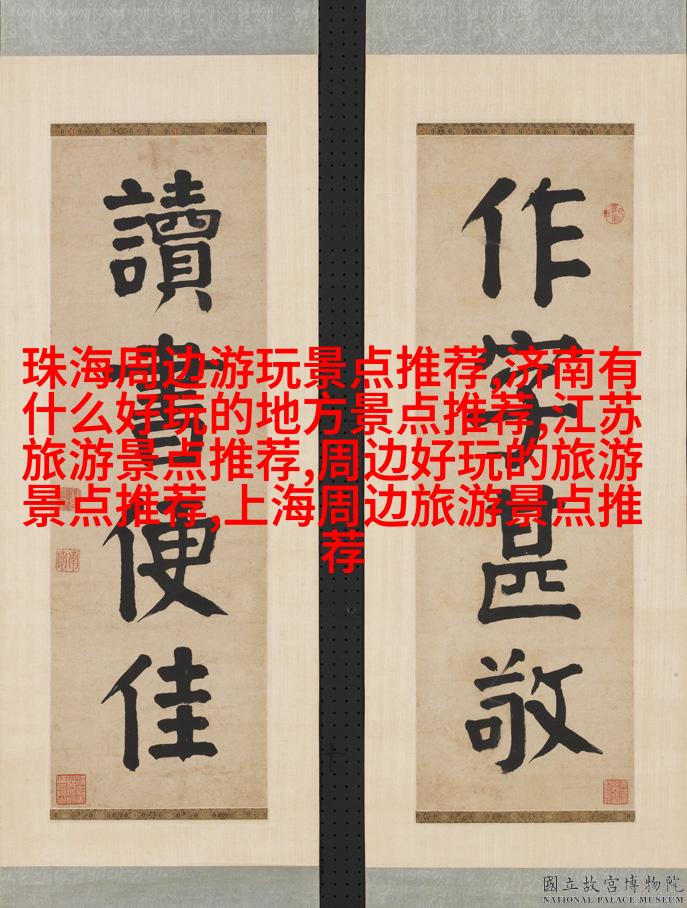 作字甚敬
讀書便佳
珠海周边游玩景点推荐,济南有
什么好玩的地方景点推荐,江苏
旅游景点推荐,周边好玩的旅游
景点推荐,上海周边旅游景点推
荐
國立故宮博物院
NATIONAL PALACE MUSEUM